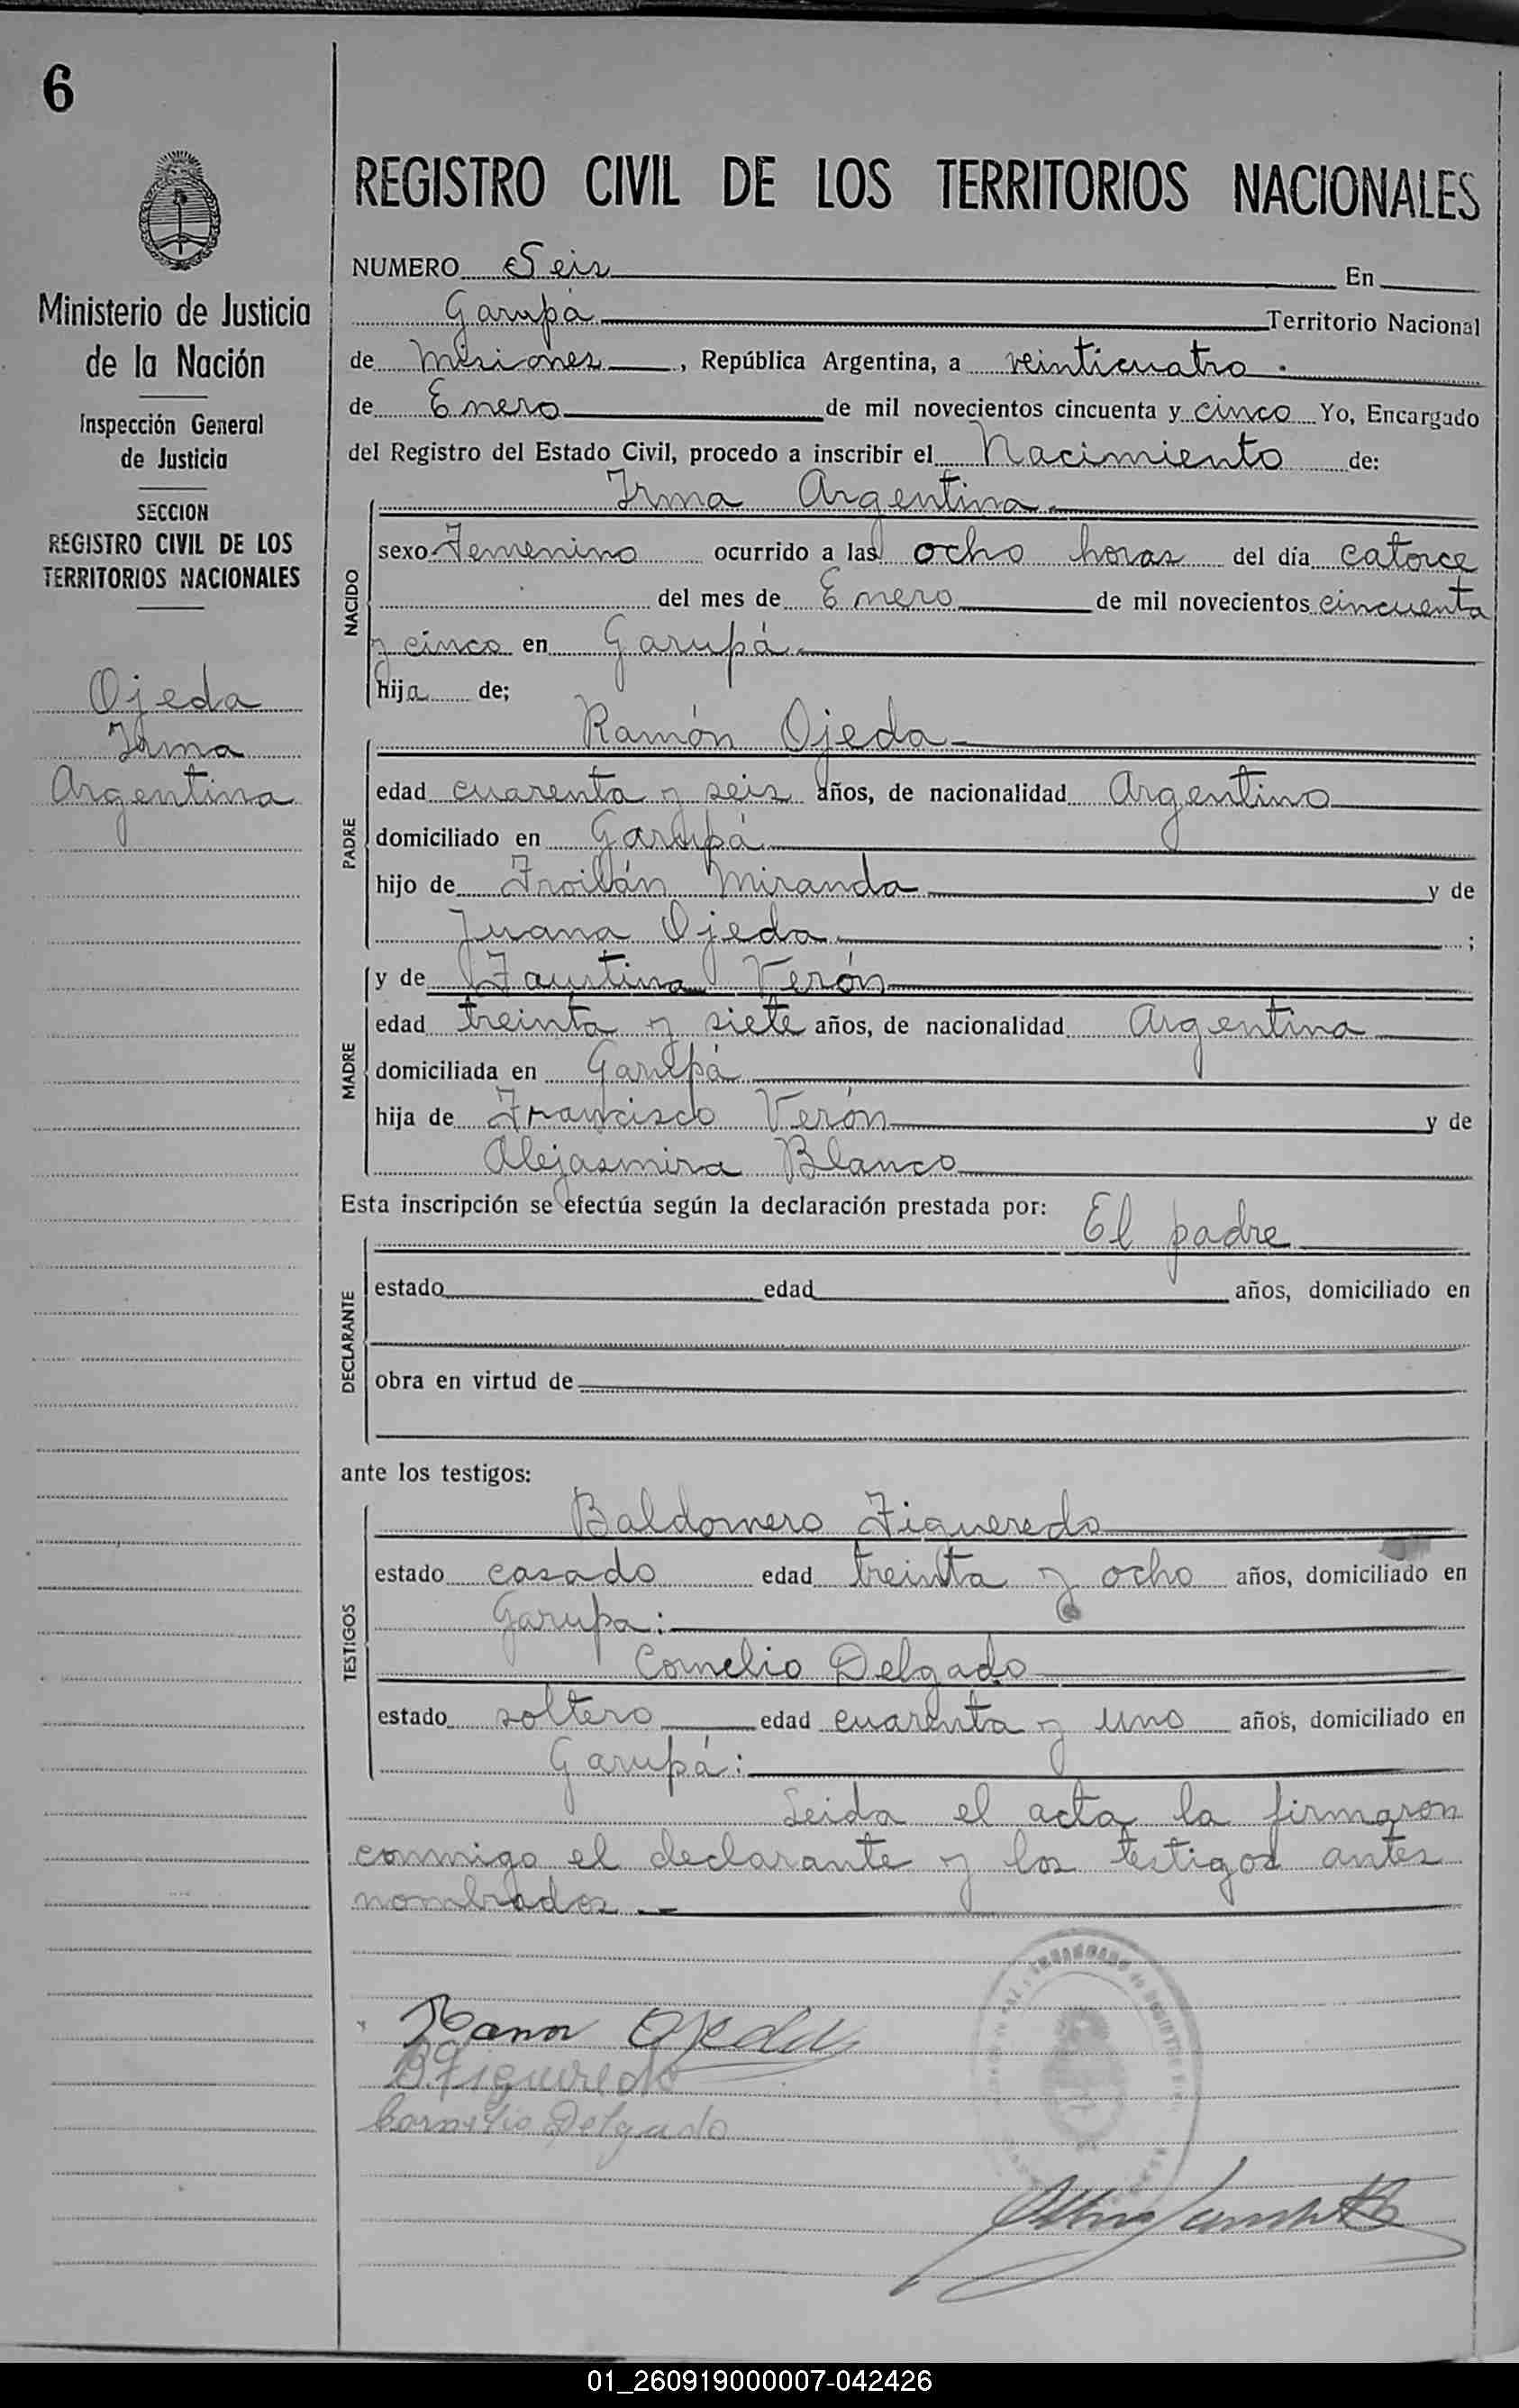 6
Ministerio de Justicia
de la Nación
Inspección General
de Justicia
SECCION
REGISTRO CIVIL DE LOS
TERRITORIOS NACIONALES
Ojeda
Irma
Argentina
REGISTRO CIVIL DE LOS TERRITORIOS NACIONALES
NUMERO Seis En
Garupá Territorio Nacional
de Misiones, República Argentina, a veinticuatro
de Enero de mil novecientos cincuenta y cinco Yo, Encargado
del Registro del Estado Civil, procedo a inscribir el Nacimiento de:
Irma Argentina
NACIDO
sexo Femenino ocurrido a las ocho horas del día catorce
del mes de Enero de mil novecientos cincuenta
y cinco en Garupá
hija de;
Ramón Ojeda
PADRE
edad cuarenta y seis años, de nacionalidad Argentino
domiciliado en Garupá
hijo de Froilán Miranda y de
Juana Ojeda ;
y de Faustina Verón
MADRE
edad treinta y siete años, de nacionalidad Argentina
domiciliada en Garupá
hija de Francisco Verón y de
Alejasmira Blanco
Esta inscripción se efectúa según la declaración prestada por:
El padre
DECLARANTE
estado edad años, domiciliado en
obra en virtud de
ante los testigos:
Baldomero Figueredo
TESTIGOS
estado casado edad treinta y ocho años, domiciliado en
Garupa:
Cornelio Delgado
estado soltero edad cuarenta y uno años, domiciliado en
Garupá:
Leida el acta la firmaron
conmigo el declarante y los testigos antes
nombrados.-
Ramon Ojeda
B. Figueredo
Cornelio Delgado
01_260919000007-042426